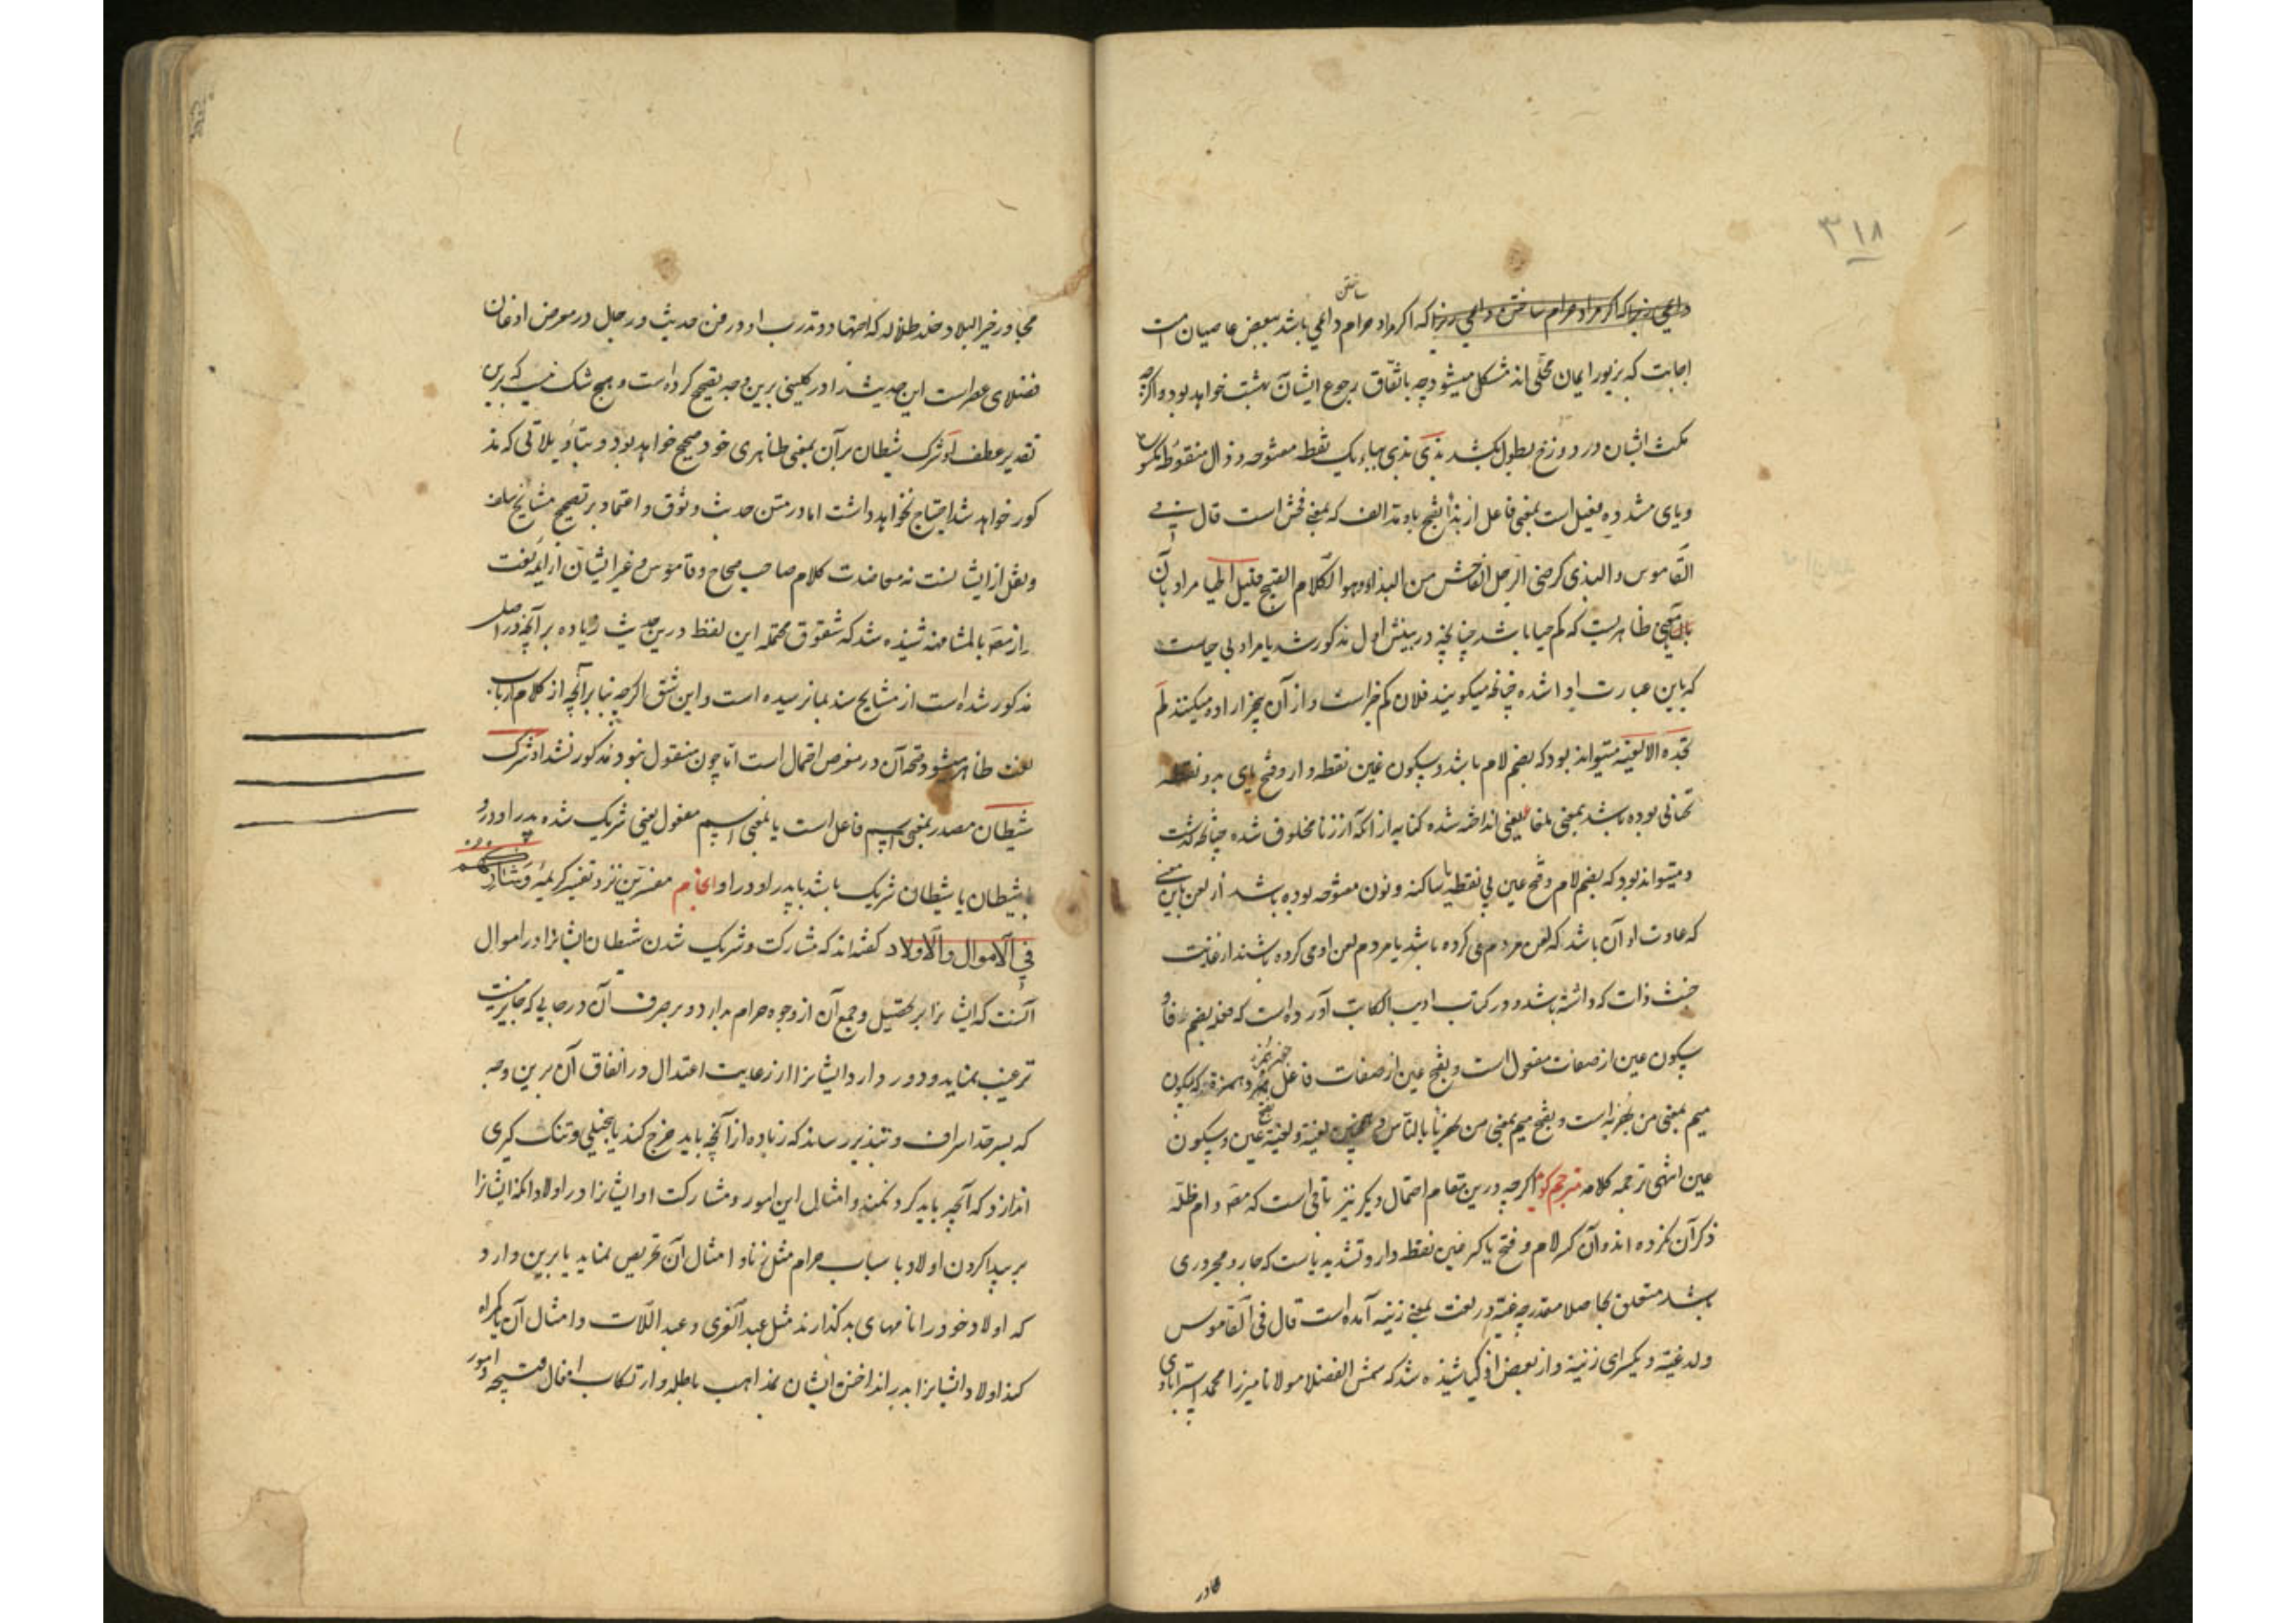 ۳۱۸
ساختن
که اگر مراد حرام دائمی باشد ببعض عاصیان امت
اجابت که بزیور ایمان محلی اند مشکل میشود چه باتفاق رجوع ایشان بهشت خواهد بود و اگرچه
مکث ایشان در دوزخ بطول بکشد بذی بذی بباء یک نقطه مفتوحه و ذال منقوطه مکسوره
و یای مشدده فعیل است بمعنی فاعل از بذا بفتح با و مد الف که بمعنی فحش است قال فی
القاموس و البذی کرضی الرجل الفاحش من البذاء و هو الکلام القبیح قلیل الحیا مراد بآن
معنی ظاهریست که کم حیا باشد چنانچه در بینش اول مذکور شد یا مراد بی حیاست
که باین عبارت ادا شده چنانچه میگویند فلان کم خیر است و از آن بیخیر اراده میکنند لم
تجده الا لغیه میتواند بود که بضم لام باشد و سکون غین نقطه دار و فتح یای بدو نقطه
تحتانی بوده باشد بمعنی ملغا یعنی انداخته شده کنایه از آنکه از زنا مخلوق شده چنانچه گذشت
و میتواند بود که بضم لام و فتح عین بی نقطه یا ساکنه و نون مفتوحه بوده باشد از لعن باین معنی
که عادت او آن باشد که لعن مردم می کرده باشد یا مردم لعن او می کرده باشند از غایت
خبث ذات که داشته باشد و در کتاب ادب الکاتب آورده است که فعله بضم فا و
سکون عین از صفات مفعول است و بفتح عین از صفات فاعل و همزة که بسکون
میم بمعنی من یهزء به است و بفتح میم بمعنی من یهزء بالناس و همچنین لعنة و لعنة بفتح عین و سکون
عین انتهی ترجمه کلامه مترجم گوید اگرچه درین مقام احتمال دیگر نیز باقی است که مصه دام ظله
ذکر آن نکرده اند و آن کسر لام و فتح یا کسر غین نقطه دار و تشدید یاست که جار و مجروری
باشد متعلق بحاصلا مقدر چه غیة در لغت بمعنی زنیه آمده است قال فی القاموس
ولد غیة و یکسر ای زنیة و از بعض اذکیا شنیده شد که شمس الفضلا مولانا میرزا محمد استرابادی
مجاور
مجاور خیر البلاد خلد ظلاله که اجتهاد و تدرب او در فن حدیث و رجال در معرض اذعان
فضلای عصر است این حدیث را در کلینی برین وجه تصحیح کرده است و هیچ شک نیست که برین
تقدیر عطف او شرک شیطان بر آن بمعنی ظاهری خود صحیح خواهد بود و بتأویلاتی که مذ
کور خواهد شد احتیاج نخواهد داشت اما در متن حدیث وثوق و اعتماد بر تصحیح مشایخ سلف
و نقل از ایشانست نه معاضدت کلام صاحب صحاح و قاموس و غیر ایشان از ایمه لغت
و از مصه بالمشافهه شنیده شد که شقوق محتمله این لفظ درین حدیث زیاده بر آنچه در اصل
مذکور شده است از مشایخ سند بما نرسیده است و این شق اگرچه بنا بر آنچه از کلام ارباب
لغت ظاهر میشود صحت آن در معرض احتمال است اما چون منقول نبود مذکور نشد او شرک
شیطان مصدر بمعنی اسم فاعل است یا بمعنی اسم مفعول یعنی شریک شده پدر او درو
بشیطان یا شیطان شریک باشد با پدر او در او انجام مفسرین نزد تفسیر کریمه و شارکهم
فی الاموال و الاولاد گفته اند که مشارکت و شریک شدن شیطان ایشانرا در اموال
آنست که ایشانرا بر تحصیل و جمع آن از وجوه حرام میدارد و بر صرف آن در جایی که جایز نیست
ترغیب نماید و دور دارد ایشانرا از رعایت اعتدال در انفاق آن برین وجه
که بسر حد اسراف و تبذیر رساند که زیاده از آنچه باید خرج کند یا بخیلی و تنگ گیری
اندازد که آنچه باید کرد نکند و امثال این امور و مشارکت او ایشانرا در اولاد آنکه ایشانرا
بر پیدا کردن اولاد باسباب حرام مثل زنا و امثال آن تحریص نماید یا برین دارد
که اولاد خود را نامهای بد گذارند مثل عبد العزی و عبد اللات و امثال آن یا گمراه
کند اولاد ایشانرا بدر انداختن ایشان بمذاهب باطله و ارتکاب افعال قبیحه و امور